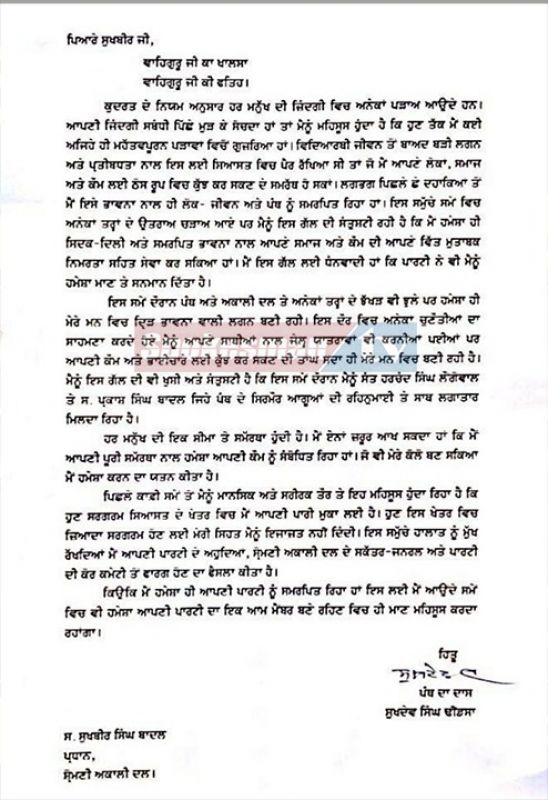 ਪਿਆਰੇ ਸੁਖਬੀਰ ਜੀ,
ਵਾਹਿਗੁਰੂ ਜੀ ਕਾ ਖਾਲਸਾ
ਵਾਹਿਗੁਰੂ ਜੀ ਕੀ ਫਤਿਹ।
ਕੁਦਰਤ ਦੇ ਨਿਯਮ ਅਨੁਸਾਰ ਹਰ ਮਨੁੱਖ ਦੀ ਜਿੰਦਗੀ ਵਿਚ ਅਨੇਕਾਂ ਪੜਾਅ ਆਉਂਦੇ ਹਨ।
ਆਪਣੀ ਜਿੰਦਗੀ ਸਬੰਧੀ ਪਿੱਛੇ ਮੁੜ ਕੇ ਸੋਚਦਾ ਹਾਂ ਤਾਂ ਮੈਨੂੰ ਮਹਿਸੂਸ ਹੁੰਦਾ ਹੈ ਕਿ ਹੁਣ ਤੱਕ ਮੈਂ ਕਈ
ਅਜਿਹੇ ਹੀ ਮਹੱਤਵਪੂਰਨ ਪੜਾਵਾਂ ਵਿਚੋਂ ਗੁਜ਼ਰਿਆ ਹਾਂ। ਵਿਦਿਆਰਥੀ ਜੀਵਨ ਤੋਂ ਬਾਅਦ ਬੜੀ ਲਗਨ
ਅਤੇ ਪ੍ਰਤੀਬਧਤਾ ਨਾਲ ਇਸ ਲਈ ਸਿਆਸਤ ਵਿਚ ਪੈਰ ਰੱਖਿਆ ਸੀ ਤਾਂ ਜੋ ਮੈਂ ਆਪਣੇ ਲੋਕਾਂ, ਸਮਾਜ
ਅਤੇ ਕੌਮ ਲਈ ਠੋਸ ਰੂਪ ਵਿਚ ਕੁੱਝ ਕਰ ਸਕਣ ਦੇ ਸਮਰੱਥ ਹੋ ਸਕਾਂ। ਲਗਭਗ ਪਿਛਲੇ ਛੇ ਦਹਾਕਿਆਂ ਤੋਂ
ਮੈਂ ਇਸੇ ਭਾਵਨਾ ਨਾਲ ਹੀ ਲੋਕ- ਜੀਵਨ ਅਤੇ ਪੰਥ ਨੂੰ ਸਮਰਪਿਤ ਰਿਹਾ ਹਾਂ। ਇਸ ਸਮੁੱਚੇ ਸਮੇਂ ਵਿਚ
ਅਨੇਕਾਂ ਤਰ੍ਹਾਂ ਦੇ ਉਤਰਾਅ ਚੜਾਅ ਆਏ ਪਰ ਮੈਨੂੰ ਇਸ ਗੱਲ ਦੀ ਸੰਤੁਸ਼ਟੀ ਰਹੀ ਹੈ ਕਿ ਮੈਂ ਹਮੇਸ਼ਾ ਹੀ
ਸਿਦਕ-ਦਿਲੀ ਅਤੇ ਸਮਰਪਿਤ ਭਾਵਨਾ ਨਾਲ ਆਪਣੇ ਸਮਾਜ ਅਤੇ ਕੌਮ ਦੀ ਆਪਣੇ ਵਿੱਤ ਮੁਤਾਬਕ
ਨਿਮਰਤਾ ਸਹਿਤ ਸੇਵਾ ਕਰ ਸਕਿਆ ਹਾਂ। ਮੈਂ ਇਸ ਗੱਲ ਲਈ ਧੰਨਵਾਦੀ ਹਾਂ ਕਿ ਪਾਰਟੀ ਨੇ ਵੀ ਮੈਨੂੰ
ਹਮੇਸ਼ਾ ਮਾਣ ਤੇ ਸਨਮਾਨ ਦਿੱਤਾ ਹੈ।
ਇਸ ਸਮੇਂ ਦੌਰਾਨ ਪੰਥ ਅਤੇ ਅਕਾਲੀ ਦਲ ਤੇ ਅਨੇਕਾਂ ਤਰ੍ਹਾਂ ਦੇ ਝੱਖੜ ਵੀ ਝੁਲੇ ਪਰ ਹਮੇਸ਼ਾ ਹੀ
ਮੇਰੇ ਮਨ ਵਿਚ ਦ੍ਰਿੜ ਭਾਵਨਾ ਵਾਲੀ ਲਗਨ ਬਣੀ ਰਹੀ। ਇਸ ਦੌਰ ਵਿਚ ਅਨੇਕਾਂ ਚੁਣੌਤੀਆਂ ਦਾ
ਸਾਹਮਣਾ ਕਰਦੇ ਹੋਏ ਮੈਨੂੰ ਆਪਣੇ ਸਾਥੀਆਂ ਨਾਲ ਜੇਲ੍ਹ ਯਾਤਰਾਵਾਂ ਵੀ ਕਰਨੀਆਂ ਪਈਆਂ ਪਰ
ਆਪਣੀ ਕੌਮ ਅਤੇ ਭਾਈਚਾਰੇ ਲਈ ਕੁੱਝ ਕਰ ਸਕਣ ਦੀ ਤਾਂਘ ਸਦਾ ਹੀ ਮੇਰੇ ਮਨ ਵਿਚ ਬਣੀ ਰਹੀ ਹੈ।
ਮੈਨੂੰ ਇਸ ਗੱਲ ਦੀ ਵੀ ਖੁਸ਼ੀ ਅਤੇ ਸੰਤੁਸ਼ਟੀ ਹੈ ਕਿ ਇਸ ਸਮੇਂ ਦੌਰਾਨ ਮੈਨੂੰ ਸੰਤ ਹਰਚੰਦ ਸਿੰਘ ਲੌਂਗੋਵਾਲ
ਤੇ ਸ. ਪ੍ਰਕਾਸ਼ ਸਿੰਘ ਬਾਦਲ ਜਿਹੇ ਪੰਥ ਦੇ ਸਿਰਮੌਰ ਆਗੂਆਂ ਦੀ ਰਹਿਨੁਮਾਈ ਤੇ ਸਾਥ ਲਗਾਤਾਰ
ਮਿਲਦਾ ਰਿਹਾ ਹੈ।
ਹਰ ਮਨੁੱਖ ਦੀ ਇਕ ਸੀਮਾ ਤੇ ਸਮੱਰਥਾ ਹੁੰਦੀ ਹੈ। ਮੈਂ ਏਨਾਂ ਜ਼ਰੂਰ ਆਖ ਸਕਦਾ ਹਾਂ ਕਿ ਮੈਂ
ਆਪਣੀ ਪੂਰੀ ਸਮਰੱਥਾ ਨਾਲ ਹਮੇਸ਼ਾ ਆਪਣੀ ਕੌਮ ਨੂੰ ਸੰਬੋਧਿਤ ਰਿਹਾ ਹਾਂ। ਜੋ ਵੀ ਮੇਰੇ ਕੋਲੋਂ ਬਣ ਸਕਿਆ
ਮੈਂ ਹਮੇਸ਼ਾ ਕਰਨ ਦਾ ਯਤਨ ਕੀਤਾ ਹੈ।
ਪਿਛਲੇ ਕਾਫ਼ੀ ਸਮੇਂ ਤੋਂ ਮੈਨੂੰ ਮਾਨਸਿਕ ਅਤੇ ਸਰੀਰਕ ਤੌਰ ਤੇ ਇਹ ਮਹਿਸੂਸ ਹੁੰਦਾ ਰਿਹਾ ਹੈ ਕਿ
ਹੁਣ ਸਰਗਰਮ ਸਿਆਸਤ ਦੇ ਖੇਤਰ ਵਿਚ ਮੈਂ ਆਪਣੀ ਪਾਰੀ ਮੁਕਾ ਲਈ ਹੈ। ਹੁਣ ਇਸ ਖੇਤਰ ਵਿਚ
ਜਿਆਦਾ ਸਰਗਰਮ ਹੋਣ ਲਈ ਮੇਰੀ ਸਿਹਤ ਮੈਨੂੰ ਇਜਾਜਤ ਨਹੀਂ ਦਿੰਦੀ। ਇਸ ਸਮੁੱਚੇ ਹਾਲਾਤ ਨੂੰ ਮੁੱਖ
ਰੱਖਦਿਆਂ ਮੈਂ ਆਪਣੀ ਪਾਰਟੀ ਦੇ ਅਹੁਦਿਆਂ, ਸ਼੍ਰੋਮਣੀ ਅਕਾਲੀ ਦਲ ਦੇ ਸਕੱਤਰ-ਜਨਰਲ ਅਤੇ ਪਾਰਟੀ
ਦੀ ਕੋਰ ਕਮੇਟੀ ਤੋਂ ਫਾਰਗ ਹੋਣ ਦਾ ਫੈਸਲਾ ਕੀਤਾ ਹੈ।
ਕਿਉਂਕਿ ਮੈਂ ਹਮੇਸ਼ਾ ਹੀ ਆਪਣੀ ਪਾਰਟੀ ਨੂੰ ਸਮਰਪਿਤ ਰਿਹਾ ਹਾਂ ਇਸ ਲਈ ਮੈਂ ਆਉਂਦੇ ਸਮੇਂ
ਵਿਚ ਵੀ ਹਮੇਸ਼ਾ ਆਪਣੀ ਪਾਰਟੀ ਦਾ ਇਕ ਆਮ ਮੈਂਬਰ ਬਣੇ ਰਹਿਣ ਵਿਚ ਹੀ ਮਾਣ ਮਹਿਸੂਸ ਕਰਦਾ
ਰਹਾਂਗਾ।
ਹਿਤੂ
ਪੰਥ ਦਾ ਦਾਸ
ਸੁਖਦੇਵ ਸਿੰਘ ਢੀਂਡਸਾ
ਸ. ਸੁਖਬੀਰ ਸਿੰਘ ਬਾਦਲ
ਪ੍ਰਧਾਨ,
ਸ਼੍ਰੋਮਣੀ ਅਕਾਲੀ ਦਲ।